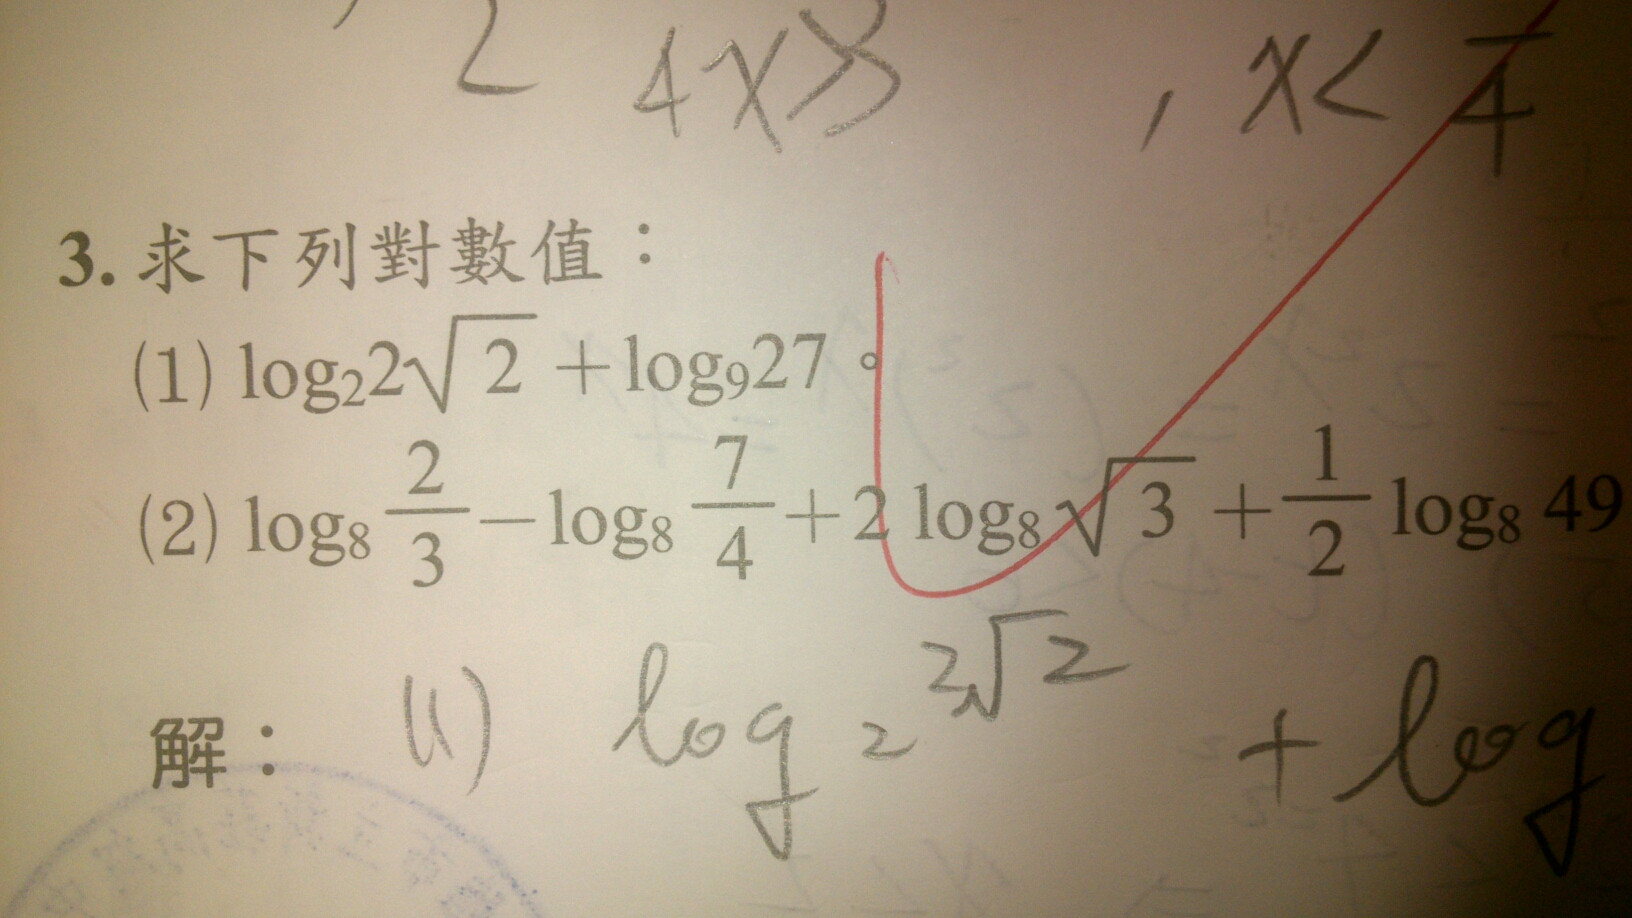 2 4x>3 , x< 4
3. 求下列對數值：
(1) log₂2√2 +log₉27。
(2) log₈ 2/3 −log₈ 7/4 +2 log₈ √3 + 1/2 log₈ 49
解： (1) log₂ 2√2 + log